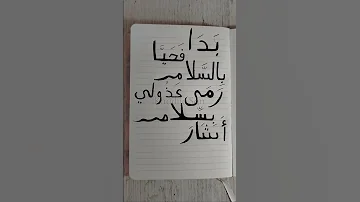 بَدَا
فَحَيَّا
بِالسَّلَامِ
رَمَى عَذُولِي
بِسَّلَامِ
أَتَثَارَ